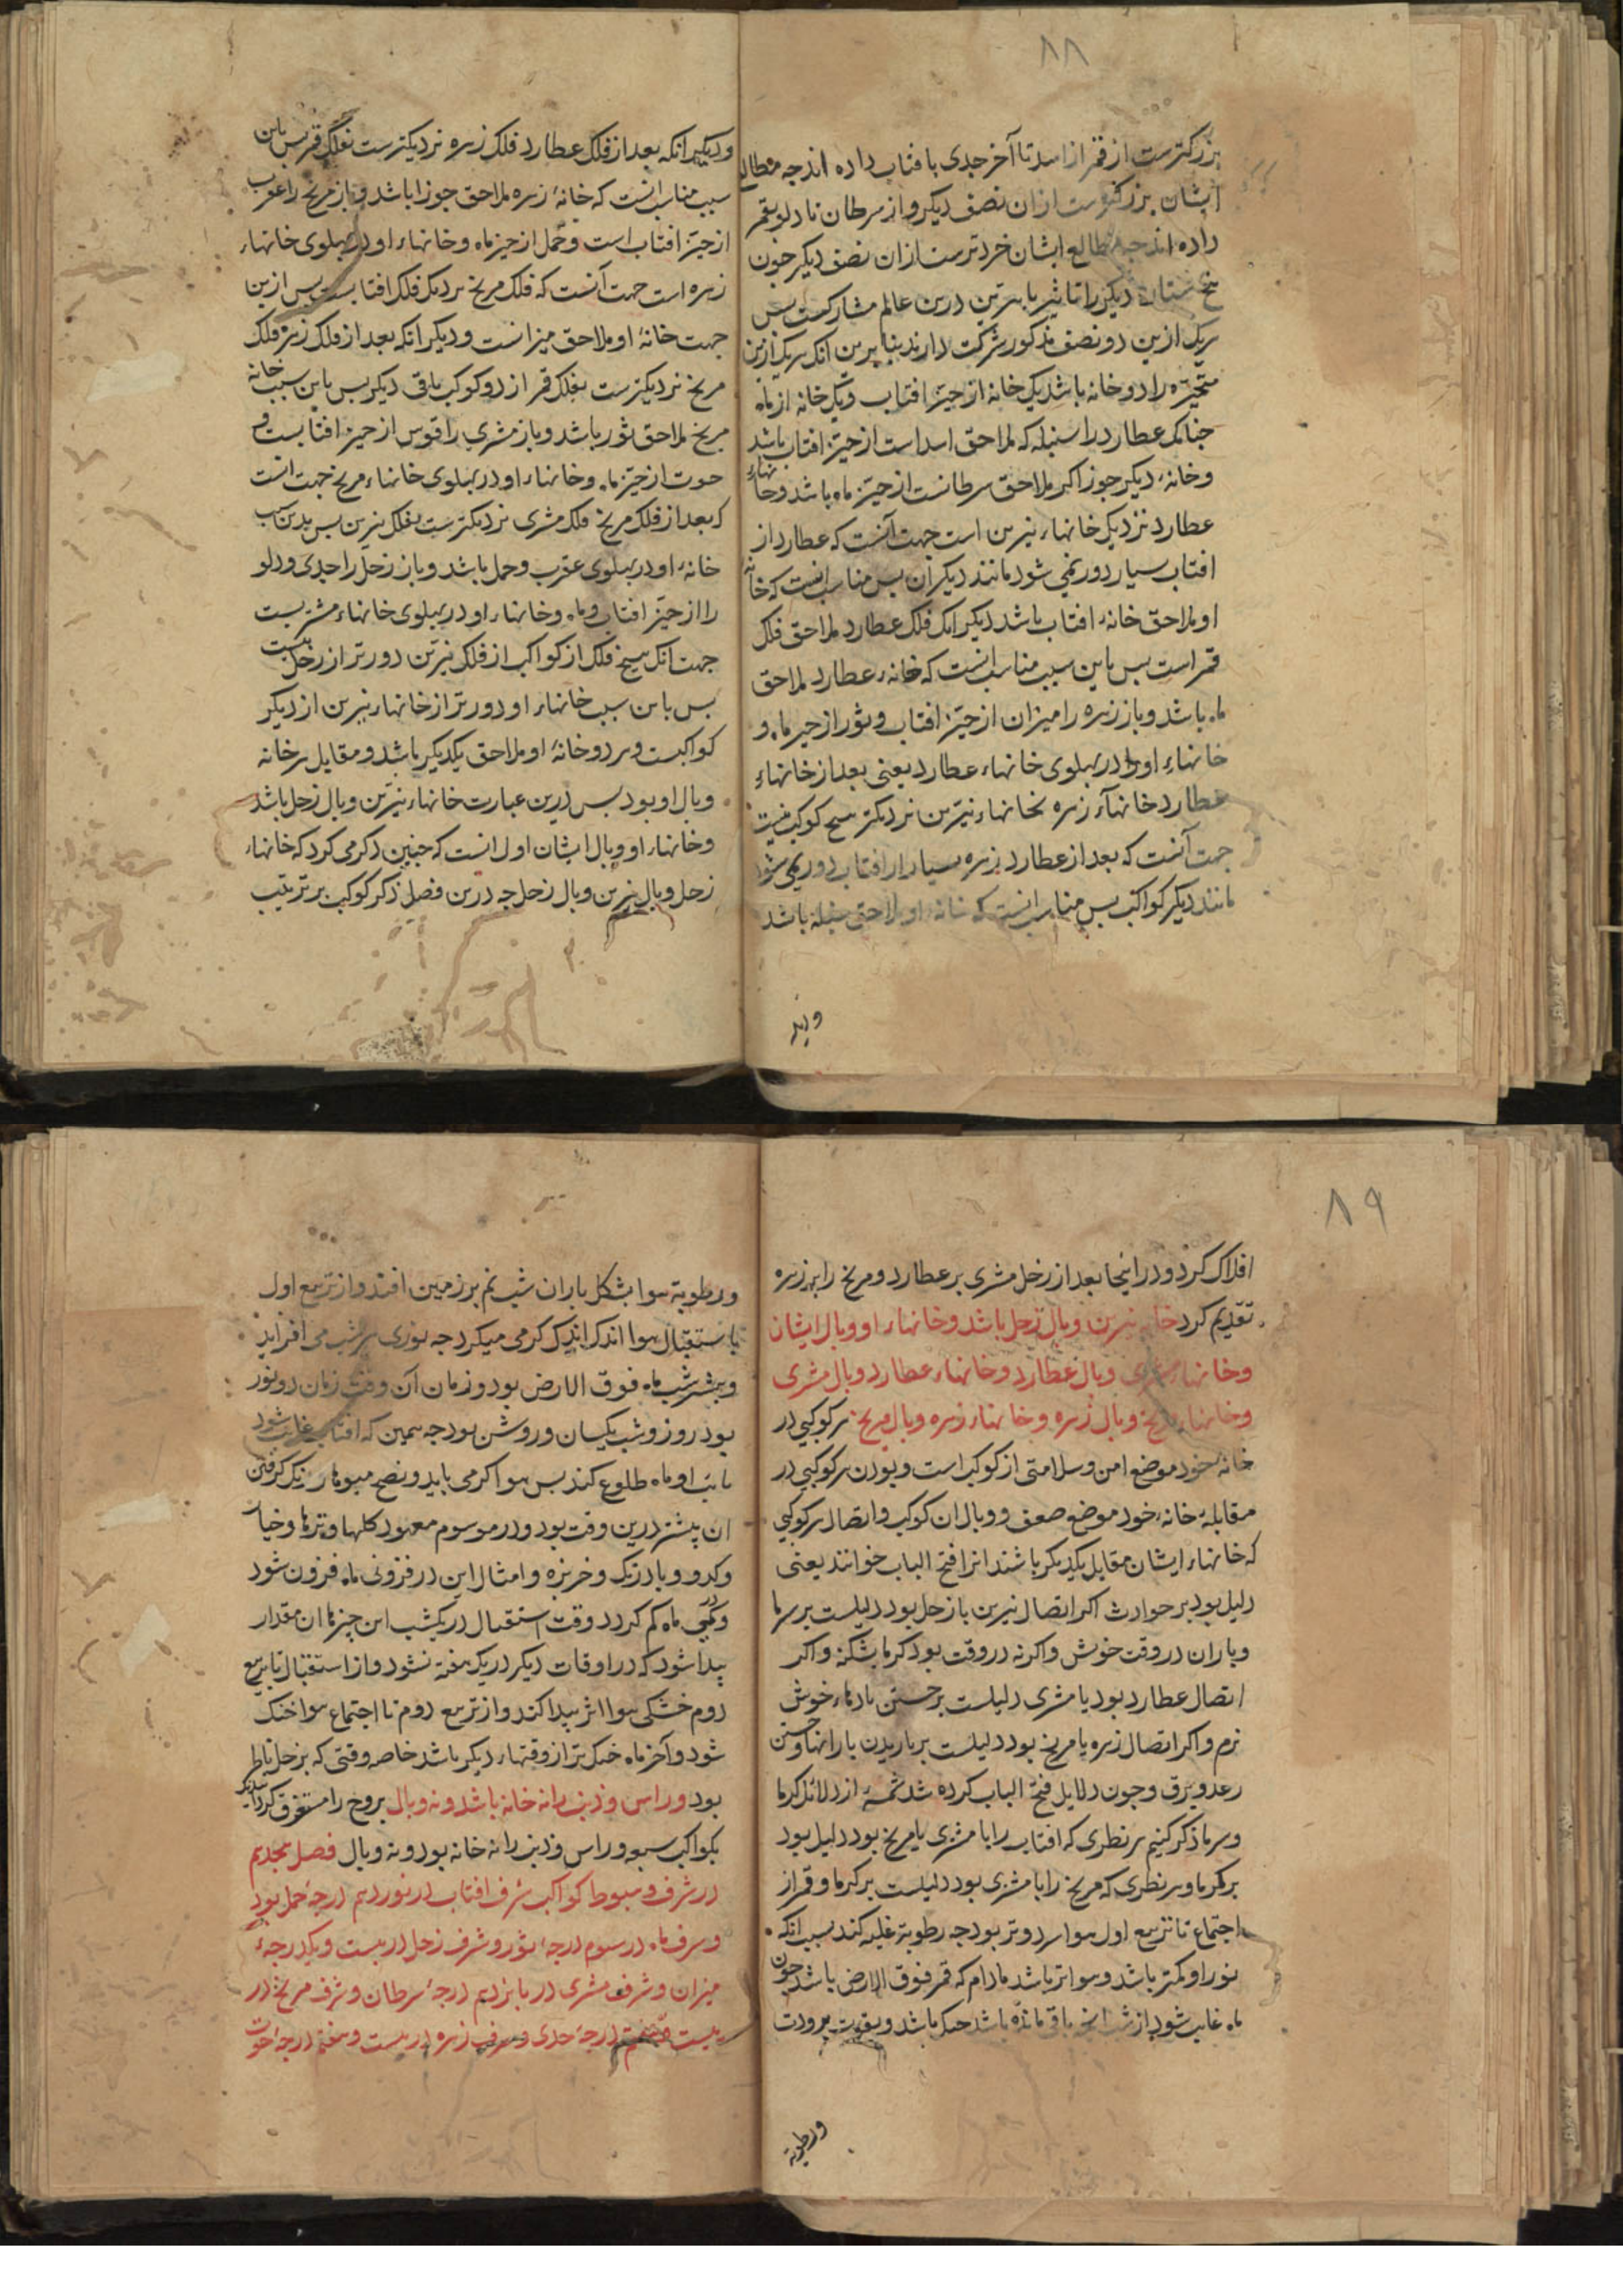 ۸۸
بزرکترست از قمر از اسد تا آخر جدی بافتاب داده اند جه مطالع
ایشان بزرکترست ازان نصف دیکر و از سرطان تا دلو بقمر
داده اند جه مطالع ایشان خردترست ازان نصف دیکر جون
بنج ستاره دیکر را تاثیر با نیرین درین عالم مشارکست بس
هریک ازین دو نصف مذکور شرکت دارند بنا برین انک هریک ازین
متحیره را دو خانه باشد یک خانه از حیّز افتاب و یک خانه از ماه
جنانک عطارد را سنبله که ملاحق اسد است از حیّز افتاب باشد
وخانهٔ دیکر جوزا که ملاحق سرطانست از حیّز ماه باشد وخانهاء
عطارد نزدیک خانهاء نیرین است جهت آنست که عطارد از
افتاب بسیار دور نمی شود مانند دیکران بس مناسب انست که خانه
او ملاحق خانهٔ افتاب باشد دیکر انک فلک عطارد ملاحق فلک
قمر است بس باین سبب مناسب انست که خانهٔ عطارد ملاحق
ماه باشد وباز زهره را میزان از حیّز افتاب وثور از حیز ماه و
خانهاء او را در بهلوی خانهاء عطارد یعنی بعد از خانهاء
عطارد خانهاء زهره بخانهاء نیّرین نزدیکتر هیح کوکب نیست
جهت آنست که بعد از عطارد زهره بسیار از افتاب دور نمی شود
مانند دیکر کواکب بس مناسب انست که خانهٔ او ملاحق سنبله باشد
ودیکر
ودیکر انکه بعد از فلک عطارد فلک زهره نزدیکترست بفلک قمر بس باین
سبب مناسب انست که خانهٔ زهره ملاحق جوزا باشد وباز مریخ را عقرب
از حیّز افتاب است وحمل از حیز ماه وخانهاء او در بهلوی خانهاء
زهره است جهت آنست که فلک مریخ نزدیک فلک افتابست بس ازین
جهت خانهٔ او ملاحق میزانست ودیکر انکه بعد از فلک زهره فلک
مریخ نزدیکترست بفلک قمر از دو کوکب باقی دیکر بس باین سبب خانه
مریخ ملاحق ثور باشد وباز مشتری را قوس از حیز افتابست و
حوت از حیّز ماه وخانهاء او در بهلوی خانهاء مریخ جهت انست
که بعد از فلک مریخ فلک مشتری نزدیکترست بفلک نیرین بس بدین سبب
خانهٔ او در بهلوی عقرب وحمل باشد وباز زحل را جدی ودلو
را از حیّز افتاب وماه وخانهاء او در بهلوی خانهاء مشتریست
جهت انک هیح فلک از کواکب از فلک نیرّین دورتر از زحل نیست
بس باین سبب خانهاء او دورتر از خانهاء نیرین از دیکر
کواکبست وهر دو خانهٔ او ملاحق یکدیکر باشد ومقابل هر خانه
وبال او بود بس درین عبارت خانهاء نیرّین وبال زحل باشد
وخانهاء او وبال ایشان اول انست که جنین ذکر می کرد که خانهاء
زحل وبال نیرین وبال زحل جه درین فصل ذکر کوکب بر ترتیب
۸۹
افلاک کرد ودر اینجا بعد از زحل مشتری بر عطارد ومریخ را بر زهره
تقدیم کرد خانه نیرین وبال زحل باشد وخانهاء او وبال ایشان
وخانهاء مشتری وبال عطارد وخانهاء عطارد وبال مشتری
وخانهاء مریخ وبال زهره وخانهاء زهره وبال مریخ هر کوکبی در
خانهٔ خود موضع امن وسلامتی از کوکب است وبودن هر کوکبی در
مقابلهٔ خانهٔ خود موضع ضعف ووبال ان کوکب واتصال هر کوکبی
که خانهاء ایشان مقابل یکدیکر باشند انرا فتح الباب خوانند یعنی
دلیل بود بر حوادث اکر اتصال نیرین با زحل بود دلیلست بر سرما
وباران در وقت خوش واکر نه در وقت بود کرما بشکند واکر
اتصال عطارد بود با مشتری دلیلست بر جستن بادهاء خوش
نرم واکر اتصال زهره با مریخ بود دلیلست بر باریدن بارانها وجستن
رعد وبرق وجون دلایل فتح الباب کرده شد شمهٔ از دلائل کرما
وسرما ذکر کنیم هر نظری که افتاب را با مشتری یا مریخ بود دلیل بود
بر کرما وهر نظری که مریخ را با مشتری بود دلیلست بر کرما وقمر از
اجتماع تا تربیع اول هوا سرد وتر بود جه رطوبة غلبه کند بسبب انکه
نور او کمتر باشد وهوا تر باشد مادام که قمر فوق الارض باشد جون
ماه غایب شود از شب انج باقی مانده باشد خنک باشد وبقوت برودت
ورطوبة
ورطوبة هوا بشکل باران شب نم بر زمین افتد واز تربیع اول
تا استقبال هوا اندک اندک کرمی میکرد جه نوری هر شب می افزاید
وبیشتر شب ماه فوق الارض بود وزمان آن وقت زمان دو نور
بود روز وشب یکسان وروشن بود جه همین که افتاب غایب شود
نایب او ماه طلوع کند بس هوا کرمی یابد ونضج میوها ورنک کرفتن
ان بیشتر درین وقت بود ودر موسوم معهود کلها وترها وخیار
وکدو وبادرنک وخربزه وامثال این در فزونی ماه فزون شود
ودر کمی ماه کم کردد وقت استقبال در یکشب این چیزها ان مقدار
بیدا شود که در اوقات دیکر در یک هفته نشود واز استقبال تا تربیع
دوم خشکی هوا اثر بیدا کند واز تربیع دوم تا اجتماع هوا خنک
شود وآخر ماه خنک تر از وقتهاء دیکر باشد خاصه وقتی که بزحل ناظر
بود وراس وذنب را نه خانه باشد ونه وبال بروج را مستغرق کردانید
بکواکب سبعه وراس وذنب را نه خانه بود ونه وبال فصل هجدهم
در شرف وهبوط کواکب شرف افتاب در نوزدهم درجهٔ حمل بود
وشرف ماه در سوم درجهٔ ثور وشرف زحل در بیست ویکدرجهٔ
میزان وشرف مشتری در بانزدهم درجهٔ سرطان وشرف مریخ در
بیست وهشتم درجهٔ جدی وشرف زهره در بیست وهفتم درجهٔ حوت